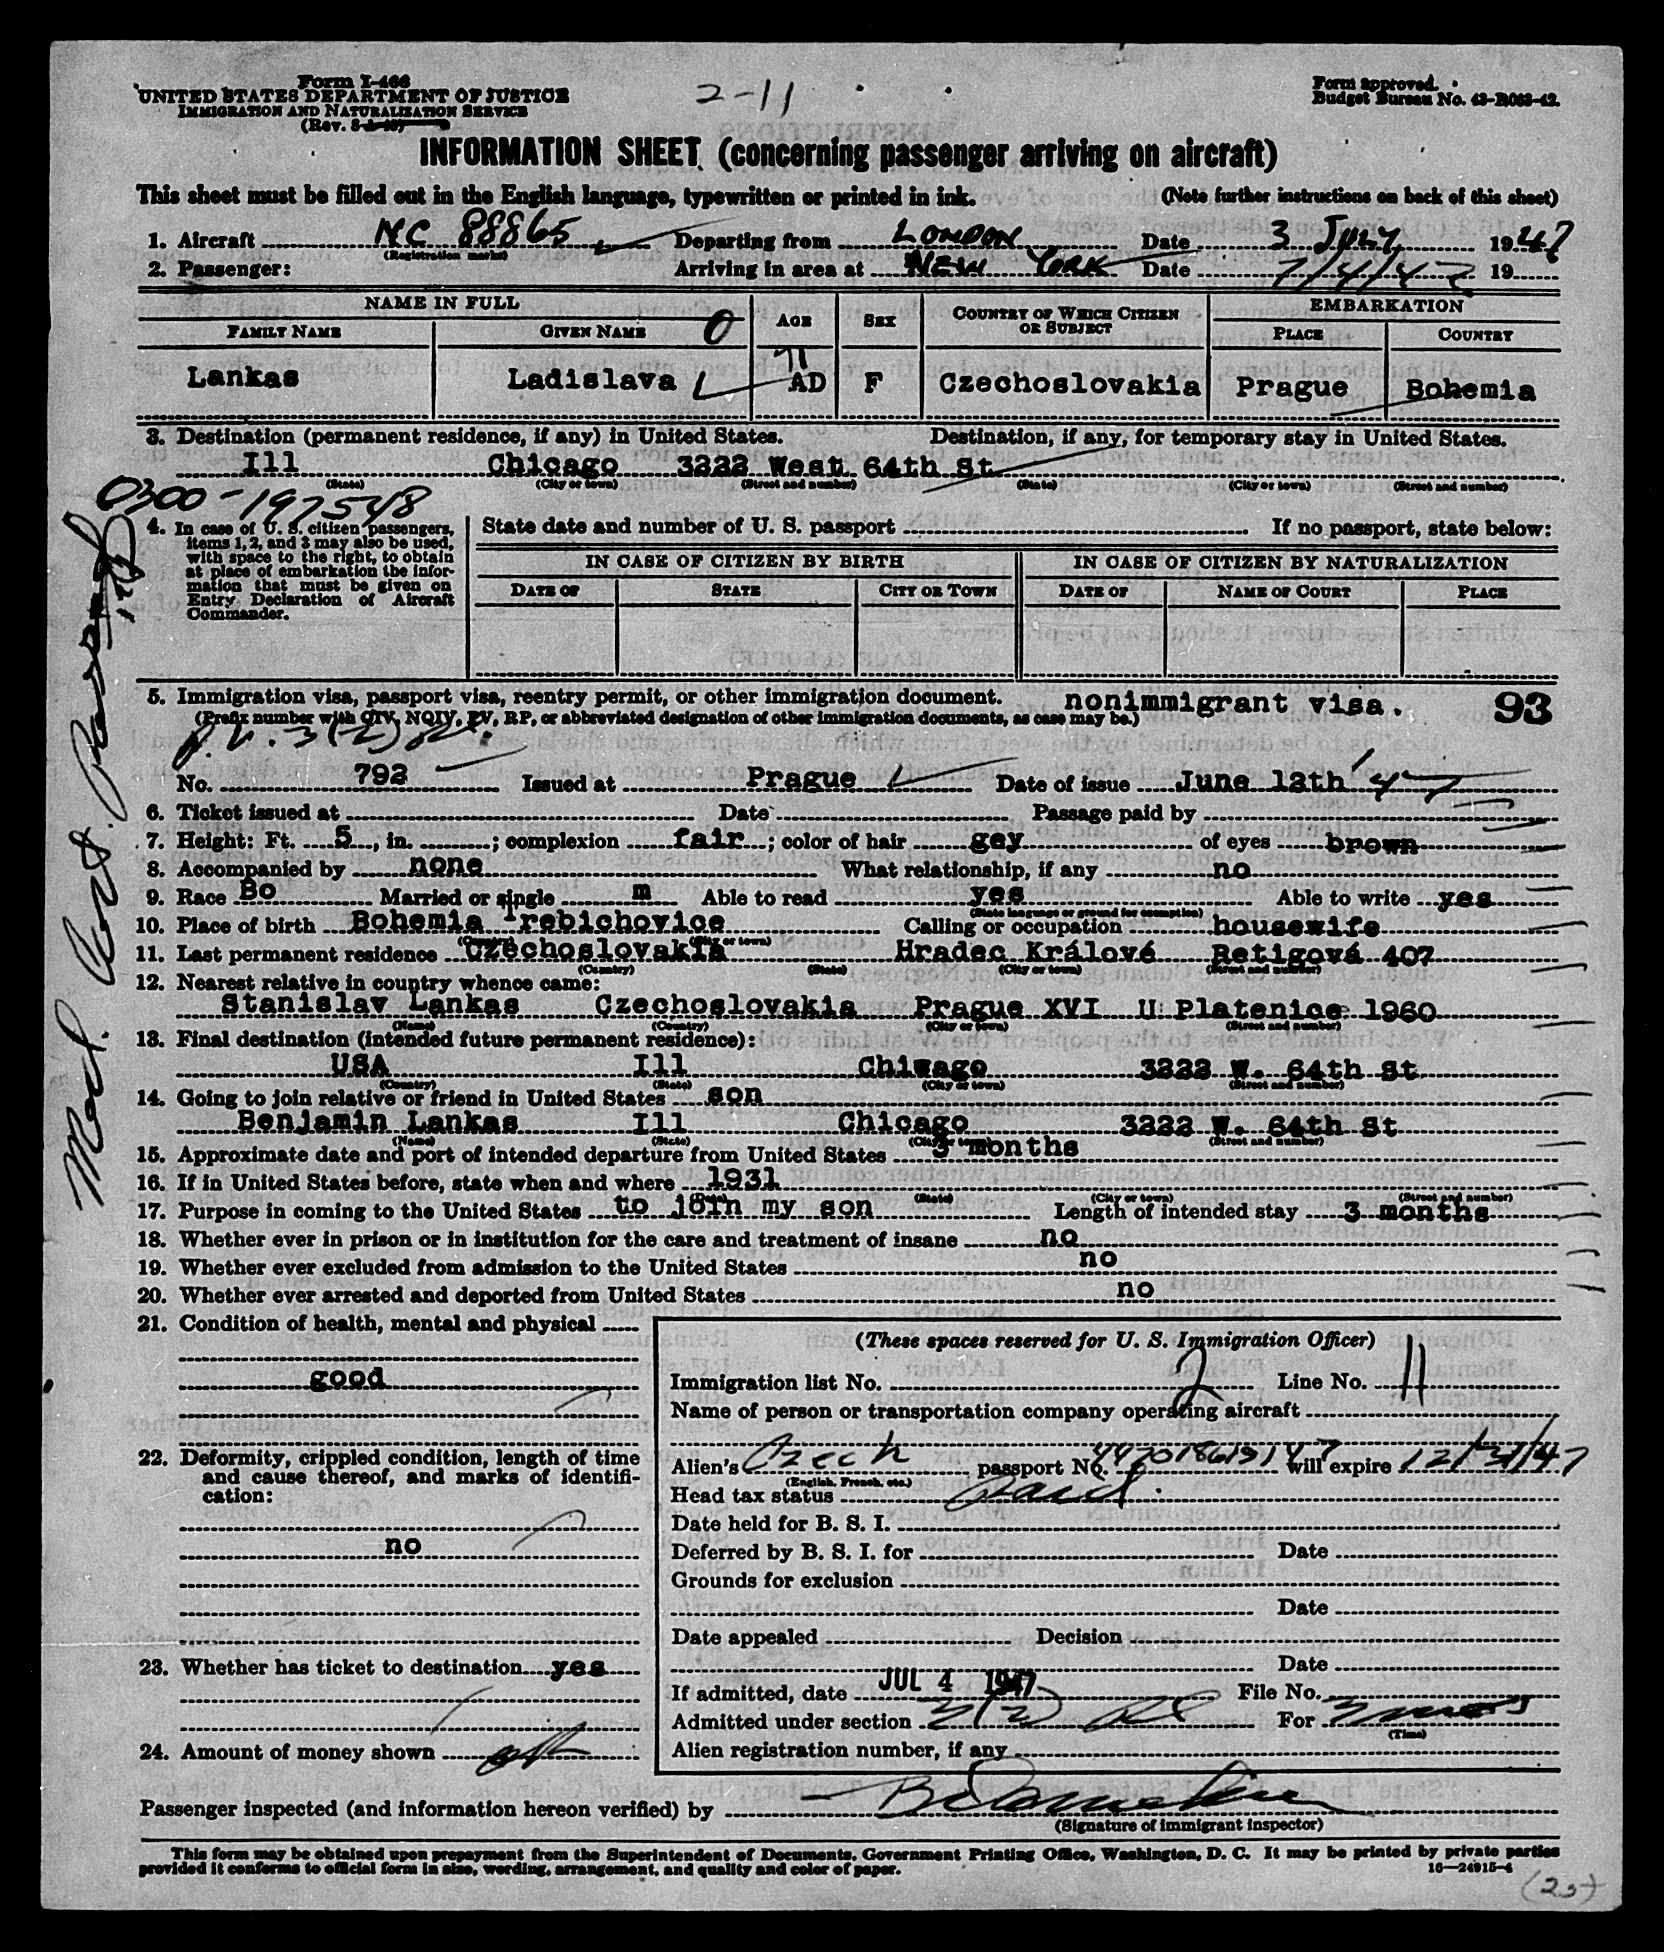 Form I-466
UNITED STATES DEPARTMENT OF JUSTICE
IMMIGRATION AND NATURALIZATION SERVICE
(Rev.
2-11
Form approved.
Budget Bureau No. 43-R063-42.
INFORMATION SHEET (concerning passenger arriving on aircraft)
This sheet must be filled out in the English language, typewritten or printed in ink. (Note further instructions on back of this sheet)
1. Aircraft NC 88865 Departing from LONDON Date 3 JULY 1947
(Registration marks)
2. Passenger: Arriving in area at NEW YORK Date 7/4/47 19
NAME IN FULL AGE SEX COUNTRY OF WHICH CITIZEN OR SUBJECT EMBARKATION
FAMILY NAME GIVEN NAME PLACE COUNTRY
0
71
Lankas Ladislava AD F Czechoslovakia Prague Bohemia
3. Destination (permanent residence, if any) in United States. Destination, if any, for temporary stay in United States.
Ill Chicago 3222 West 64th St
(State) (City or town) (Street and number) (State) (City or town) (Street and number)
0300-197548
4. In case of U. S. citizen passengers, items 1, 2, and 3 may also be used, with space to the right, to obtain at place of embarkation the information that must be given on Entry Declaration of Aircraft Commander.
State date and number of U. S. passport If no passport, state below:
IN CASE OF CITIZEN BY BIRTH IN CASE OF CITIZEN BY NATURALIZATION
DATE OF STATE CITY OR TOWN DATE OF NAME OF COURT PLACE
5. Immigration visa, passport visa, reentry permit, or other immigration document. nonimmigrant visa. 93
(Prefix number with QIV, NQIV, PV, RP, or abbreviated designation of other immigration documents, as case may be.)
P.V. 3(2)
No. 792 Issued at Prague Date of issue June 12th '47
6. Ticket issued at Date Passage paid by
7. Height: Ft. 5, in. ; complexion fair; color of hair gey of eyes brown
8. Accompanied by none What relationship, if any no
9. Race Bo Married or single m Able to read yes Able to write yes
(State language or ground for exemption)
10. Place of birth Bohemia Trebichovice Calling or occupation housewife
(Country) (City or town)
11. Last permanent residence Czechoslovakia Hradec Králové Retigová 407
(Country) (State) (City or town) (Street and number)
12. Nearest relative in country whence came:
Stanislav Lankas Czechoslovakia Prague XVI U Platenice 1960
(Name) (Country) (City or town) (Street and number)
13. Final destination (intended future permanent residence):
USA Ill Chiwago 3222 W. 64th St
(Country) (State) (City or town) (Street and number)
14. Going to join relative or friend in United States son
Benjamin Lankas Ill Chicago 3222 W. 64th St
(Name) (State) (City or town) (Street and number)
15. Approximate date and port of intended departure from United States 3 months
16. If in United States before, state when and where 1931
(Date) (State) (City or town) (Street and number)
17. Purpose in coming to the United States to join my son Length of intended stay 3 months
18. Whether ever in prison or in institution for the care and treatment of insane no
19. Whether ever excluded from admission to the United States no
20. Whether ever arrested and deported from United States no
21. Condition of health, mental and physical
good
22. Deformity, crippled condition, length of time and cause thereof, and marks of identification:
no
23. Whether has ticket to destination yes
24. Amount of money shown
(These spaces reserved for U. S. Immigration Officer)
Immigration list No. 2 Line No. 11
Name of person or transportation company operating aircraft
Alien's Czech passport No. will expire 12/31/47
(English, French, etc.)
Head tax status Paid
Date held for B. S. I.
Deferred by B. S. I. for Date
Grounds for exclusion
Date
Date appealed Decision
Date
If admitted, date JUL 4 1947 File No.
Admitted under section 3(2) For 3 mos
(Time)
Alien registration number, if any
Passenger inspected (and information hereon verified) by
(Signature of immigrant inspector)
This form may be obtained upon prepayment from the Superintendent of Documents, Government Printing Office, Washington, D. C. It may be printed by private parties
provided it conforms to official form in size, wording, arrangement, and quality and color of paper. 16—24915-4